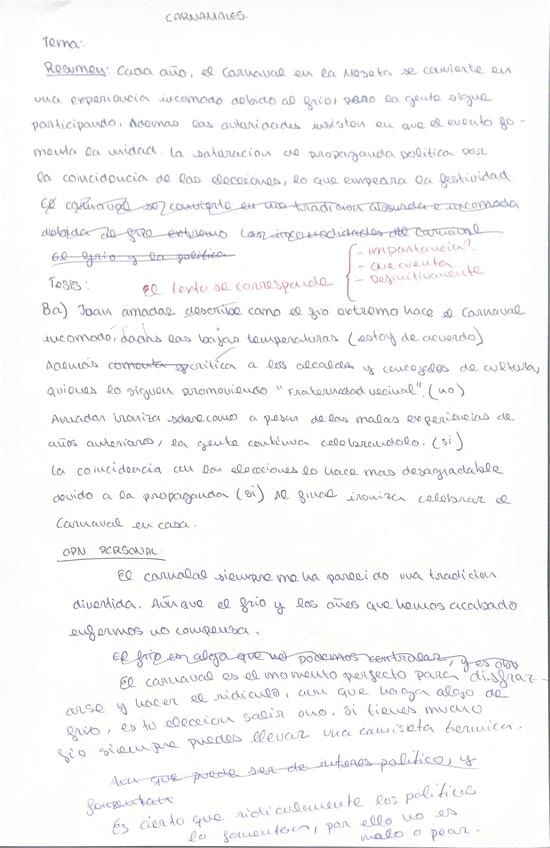 CARNAVALES.
Tema:
Resumen: Cada año, el Carnaval en la Meseta se convierte en
una experiencia incomodo debido al frio, pero la gente sigue
participando. Ademas las autoridades insisten en que el evento fo-
menta la unidad. La saturacion de propaganda politica por
la coincidencia de las elecciones, lo que empeora la festividad
El carnaval se convierte en una tradicion absurda e incomoda
debido al frio extremo Las incomodidades del Carnaval
El frio y la politica
Tesis: El texto se corresponde
- importancia?
- cuc cuenta
- Definitivamente
Ba) Joan amades describe como el frio extremo hace el Carnaval
incomodo, dadas las bajas temperaturas (estoy de acuerdo)
Además comenta critica a los alcaldes y concejales de cultura,
quienes lo siguen promoviendo "fraternidad vecinal". (no)
Amador ironiza sobre como a pesar de las malas experiencias de
años anteriores, la gente continua celebrandolo. (si)
La coincidencia con las elecciones lo hace mas desagradable
devido a la propaganda (si) al final ironiza celebrar el
Carnaval en casa.
OPN PERSONAL.
El carnabal siempre me ha parecido una tradicion
divertida. Aunque el frio y los años que hemos acabado
enfermos no compensa.
El frio es algo que no podemos controlar, y es
El carnaval es el momento perfecto para disfraz-
arse y hacer el ridiculo, aun que haga algo de
frio, es tu eleccion salir o no. Si tienes mucho
frio siempre puedes llevar una camiseta termica.
Aun que puede ser de interes politico, y
fomentan
Es cierto que ridiculamente los politicos
lo fomentan, por ello no es
malo o peor.